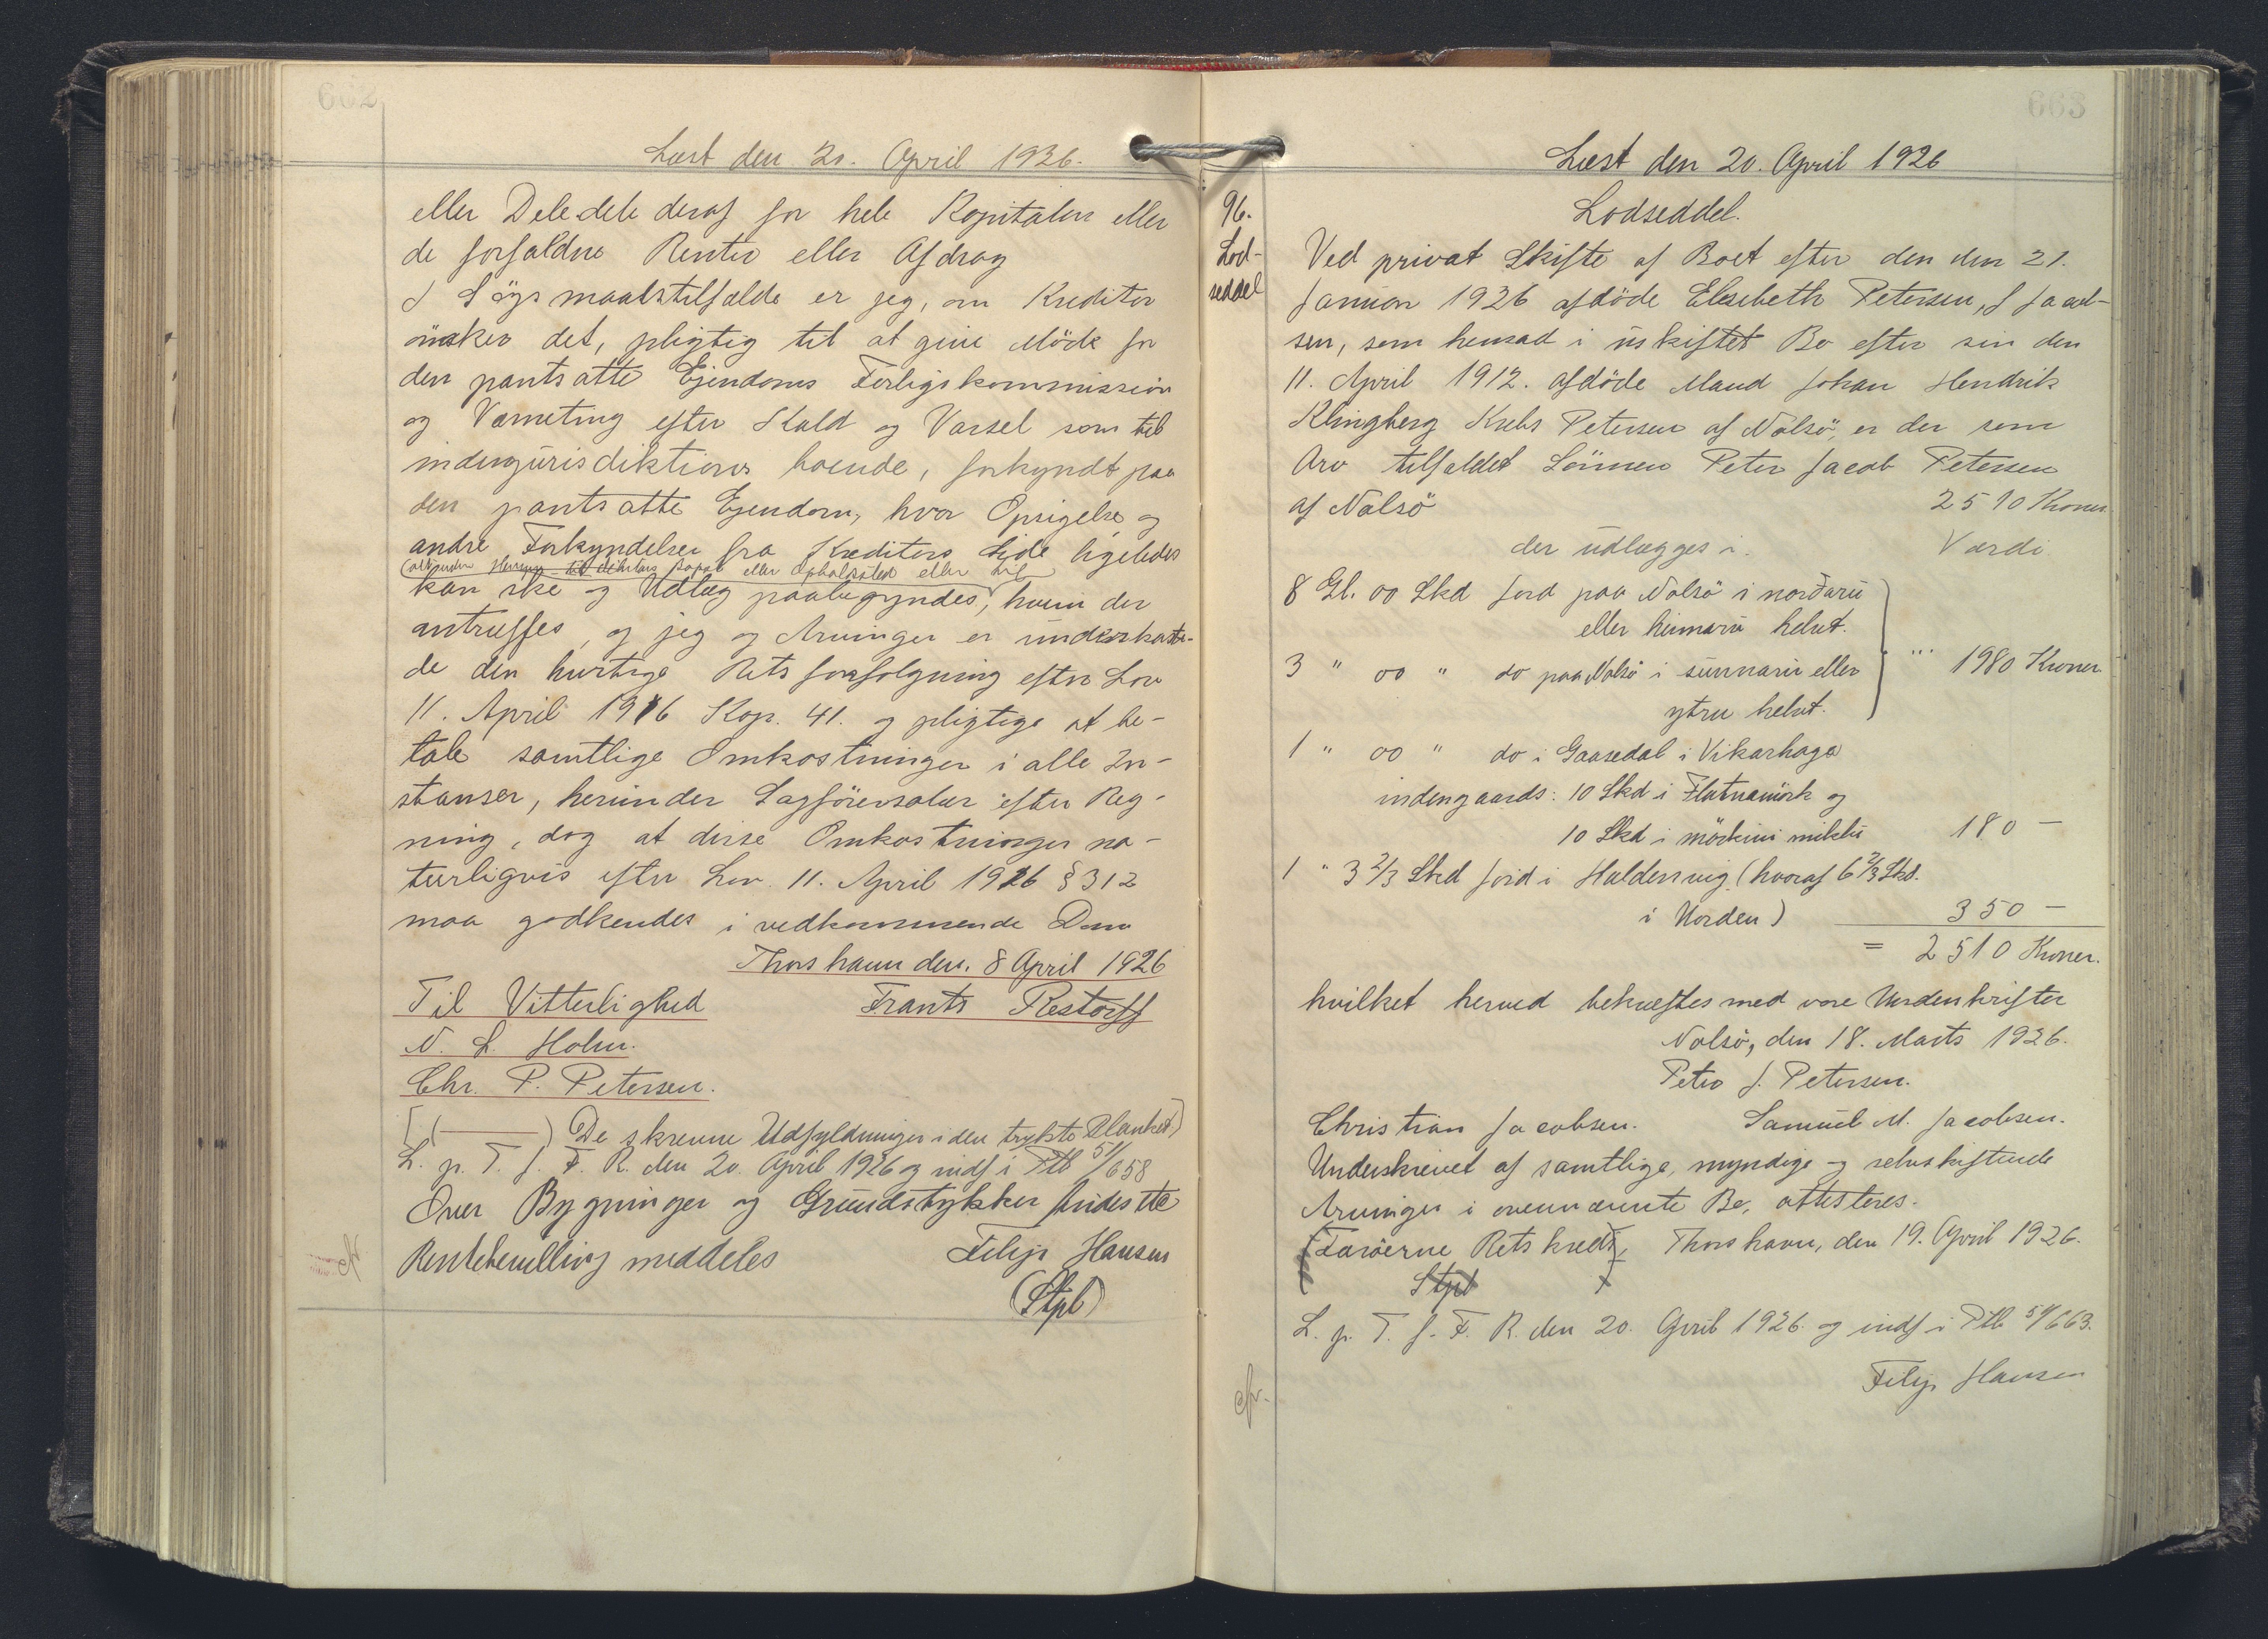 662
Læst den 20. April 1926.
eller Dele dele deraf for hele Kapitalen eller
de forfaldne Renter eller Afdrag
I Søgsmaalstilfælde er jeg, om Kreditor
ønsker det, pligtig til at give Møde for
den pantsatte Ejendoms Forligskommission
og Værneting efter Kald og Varsel som til
indenjurisdiktions boende, forkyndt paa
den pantsatte Ejendom, hvor Opsigelse og
andre Forkyndelser fra Kreditors Side ligeledes
eller Opholdssted eller til
kan ske og Udlæg paabegyndes, hvem der
antræffes, og jeg og Arvinger er underkaste-
de den hurtige Retsforfølgning efter Lov
11. April 1916 Kap. 41. og pligtige at be-
tale samtlige Omkostninger i alle In-
stanser, herunder Sagførersalær efter Reg-
ning, dog at disse Omkostninger na-
turligvis efter Lov 11. April 1916 § 312
maa godkendes i vedkommende Dom
Thorshavn den. 8 April 1926
Til Vitterlighed Frants Restorff
N. L. Holm.
Chr. P. Petersen.
[( ) De skrevne Udfyldninger i den trykte Blanket]
L. p. T. f. F. R. den 20. April 1926 og indf i Ptb 51/658
Over Bygninger og Grundstykker findes
Rentebevilling meddeles Filip Hansen
(Stpl)
663
Læst den 20. April 1926
96.
Lod-
seddel
Lodseddel.
Ved privat Skifte af Boet efter den den 21.
Januar 1926 afdöde Elsebeth Petersen, f Jacob-
sen, som hensad i uskiftet Bo efter sin den
11. April 1912. afdöde Mand Johan Hendrik
Klingberg Krebs Petersen af Nolsö, er der som
Arv tilfaldet Sönnen Peter Jacob Petersen
af Nolsö 2510 Kroner
der udlægges i. Værdi.
8 Gl. 00 Skd Jord paa Nolsö i norðaru
eller heimaru helvt.
3 " 00 " do paa Nolsö i sunnaru eller ... 1980 Kroner.
ytru helvt.
1 " 00 " do i Gaasedal i Vikarhaga
indengaards: 10 Skd i Flatnamörk og
10 Skd i mörkini miklu 180 —
1 " 3 2/3 Skd Jord i Haldersvig (hvoraf 6 2/3 Skd.
i Norden) 350 —
= 2510 Kroner.
hvilket herved bekræftes med vore Underskrifter
Nolsö, den 18. Marts 1926.
Peter J. Petersen.
Christian Jacobsen. Samuel M. Jacobsen.
Underskrevet af samtlige, myndige og selvskiftende
Arvinger i ovennævnte Bo, attesteres.
(Færöerne Retskreds), Thorshavn, den 19. April 1926.
Stpl
L. p. T. f. F. R. den 20. April 1926 og indf i Ptb 51/663.
Filip Hansen
cfr.